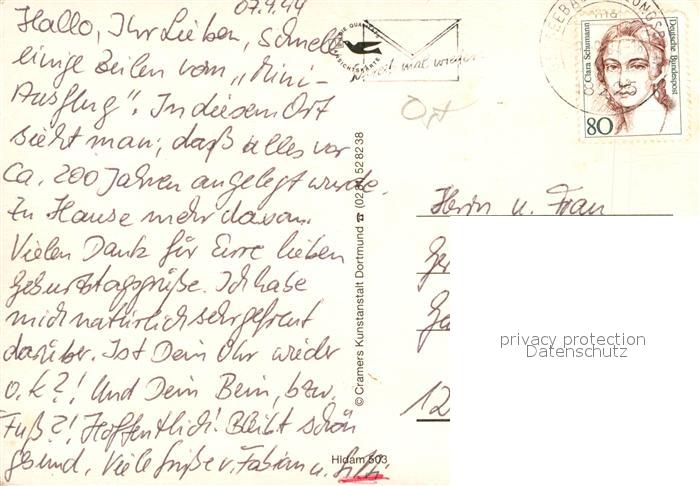 07.9.94
Hallo, Ihr Lieben, schnell
einige Zeilen vom „Mini-
Ausflug". In diesem Ort
sieht man, daß alles vor
Ca. 200 Jahren angelegt wurde.
Zu Hause mehr davon.
Vielen Dank für Eure lieben
Geburtstagsgrüße. Ich habe
mich natürlich sehr gefreut
darüber. Ist Dein Ohr wieder
o.k.?! Und Dein Bein, bzw.
Fuß?! Hoffentlich! Bleibt schön
gesund, Viele Grüße v. Fabian u.
Hidam 503
© Cramers Kunstanstalt Dortmund ☎ (0231) 52 82 38
Ort
Clara Schumann
Deutsche Bundespost
80
Herrn u. Frau
12
privacy protection
Datenschutz